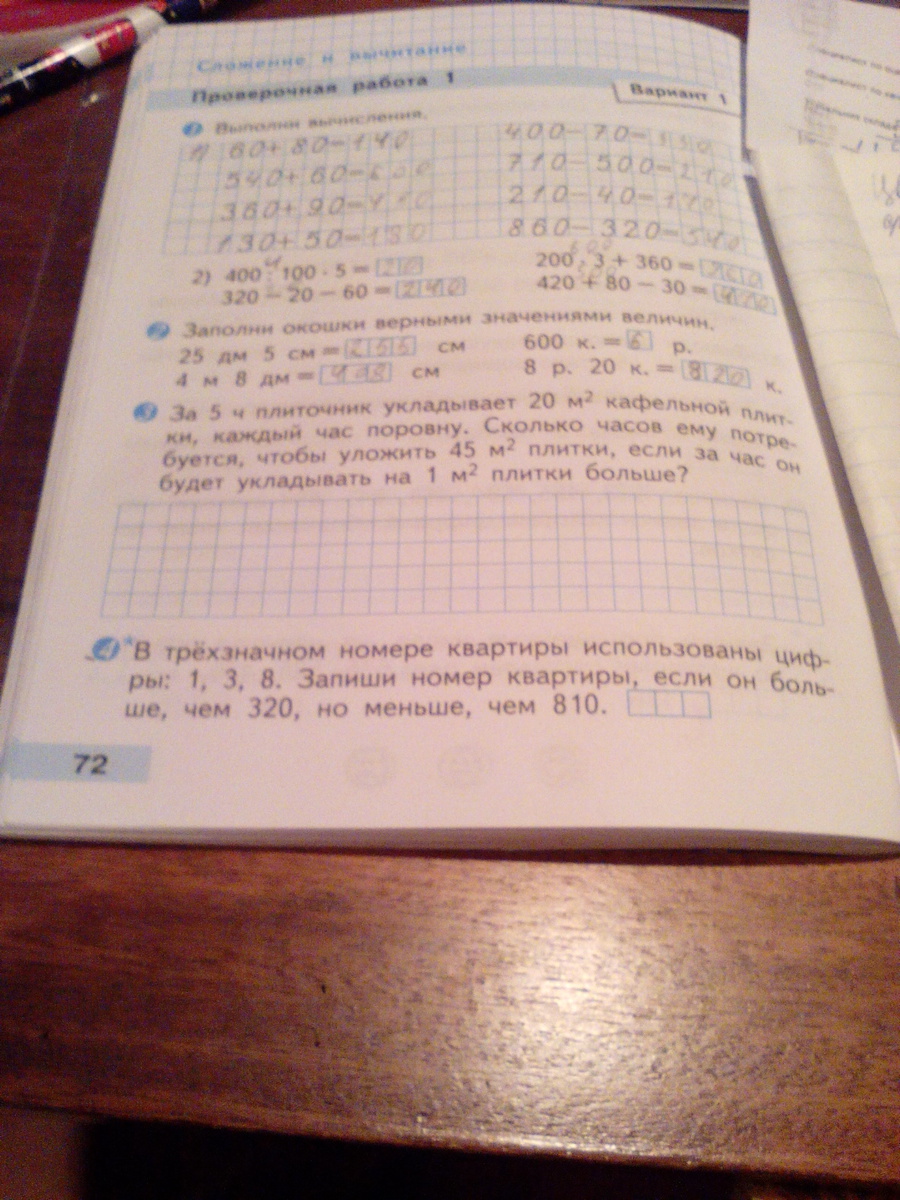 Сложение и вычитание
Проверочная работа 1
Вариант 1
1 Выполни вычисления.
1) 60+80=140 400-70=330
540+60=600 710-500=210
360+90=450 210-40=170
130+50=180 860-320=540
2) 400 : 100 · 5 = 20 200 · 3 + 360 =
4 600
320 – 20 – 60 = 240 420 + 80 – 30 =
500
2 Заполни окошки верными значениями величин.
25 дм 5 см = 255 см 600 к. = 6 р.
4 м 8 дм = см 8 р. 20 к. = 820 к.
3 За 5 ч плиточник укладывает 20 м² кафельной плит-
ки, каждый час поровну. Сколько часов ему потре-
буется, чтобы уложить 45 м² плитки, если за час он
будет укладывать на 1 м² плитки больше?
4* В трёхзначном номере квартиры использованы циф-
ры: 1, 3, 8. Запиши номер квартиры, если он боль-
ше, чем 320, но меньше, чем 810.
72